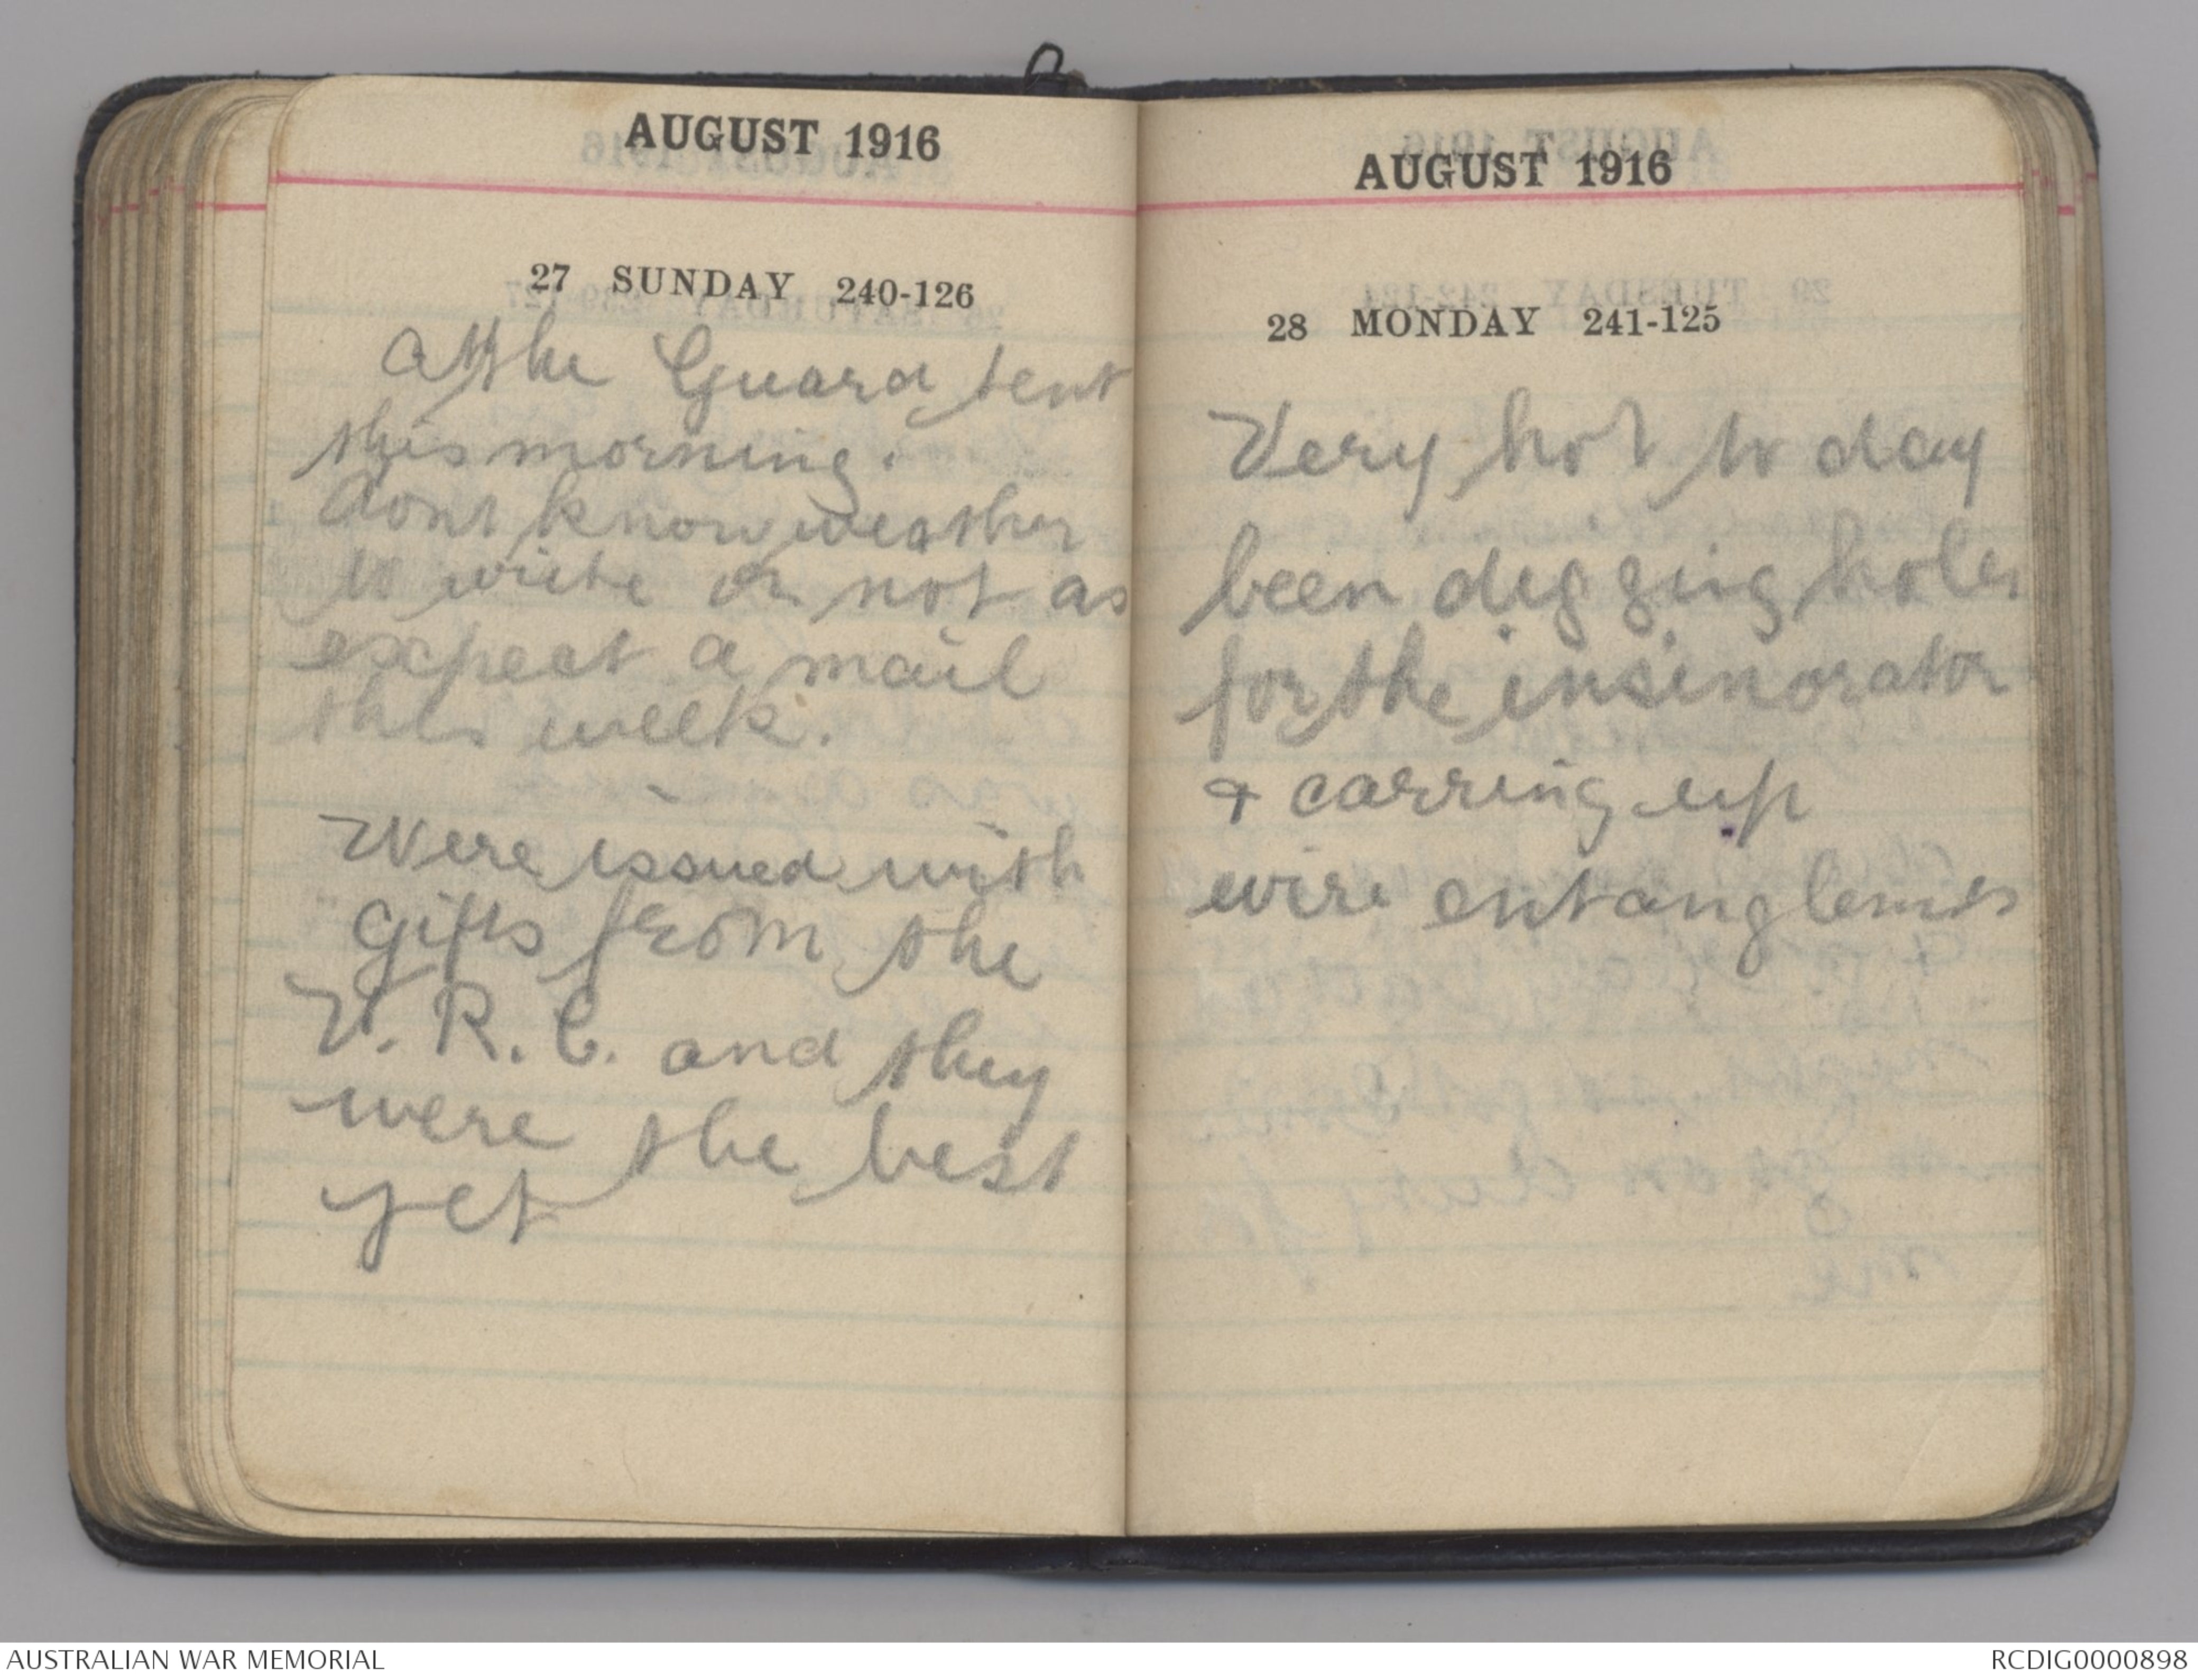 AUGUST 1916
27 SUNDAY 240-126
At the Guard tent
this morning.
dont know weather
to write or not as
expect a mail
this week.
Were issued with
gifts from the
V. R. C. and they
were the best
yet
AUGUST 1916
28 MONDAY 241-125
Very hot to day
been digging holes
for the insinorator
& carring up
wire entanglemts
AUSTRALIAN WAR MEMORIAL
RCDIG0000898